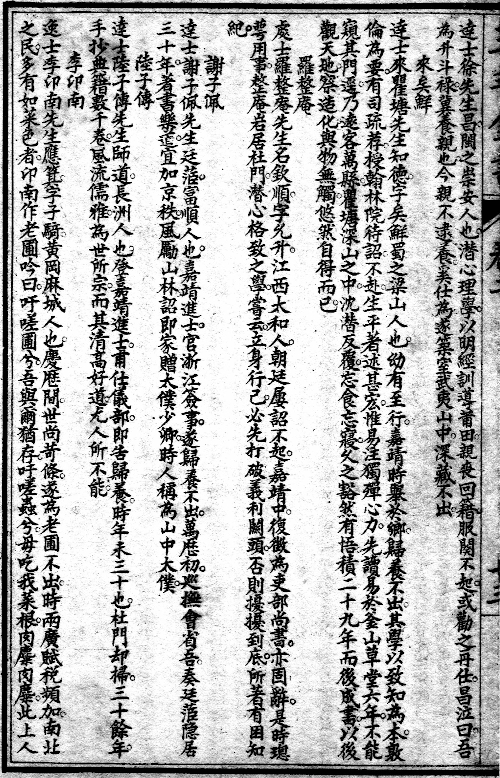 達士徐先生昌閩之崇安人也潛心理學以明經訓導莆田親喪回籍服闋不起或勸之再仕昌泣曰吾
為升斗祿冀養親也今親不逮養奚仕為遂築室武夷山中深藏不出
來矣鮮
達士來瞿塘先生知德字矣鮮蜀之梁山人也幼有至行嘉靖時舉於鄉歸養不出其學以致知為本敦
倫為要有司疏荐授翰林院待詔不赴生平者述甚家惟易注獨殫心力先讀易於釜山草堂六年不能
窺其門遂乃遠客萬縣瞿塘深山之中沈潛反覆忘食忘寢久之豁然有悟積二十九年而後成書以後
觀天地察造化與物無觸悠然自得而已
羅整庵
處士羅整庵先生名欽順字允升江西太和人朝廷屢詔不起嘉靖中復徵為吏部尚書亦固辭是時璁
萼用事整庵岩居杜門潛心格致之學嘗云立身行己必先打破義利關頭否則擾擾到底所著有困知
紀
謝子佩
達士謝子佩先生廷蒞富順人也嘉靖進士官浙江僉事遂歸養不出萬曆初巡撫會省吾奏廷蒞隱居
三十年著書樂道宜加京秩風勵山林詔即家贈太僕少卿時人稱為山中太僕
陸子傳
達士陸子傳先生師道長洲人也登嘉靖進士甫仕儀部即告歸養時年未三十也杜門却掃三十餘年
手抄典籍數千卷風流儒雅為世所宗而其清高好道尤人所不能
李卬南
逸士李卬南先生應箕字子騎黃岡麻城人也慶曆間世尚苛條遂為老圃不出時兩廣賦稅頻加南北
之民多有如菜色者卬南作老圃吟曰吁嗟圃兮吾與爾猶存吁嗟蝗兮毋吃我菜根肉麋肉麋此上人